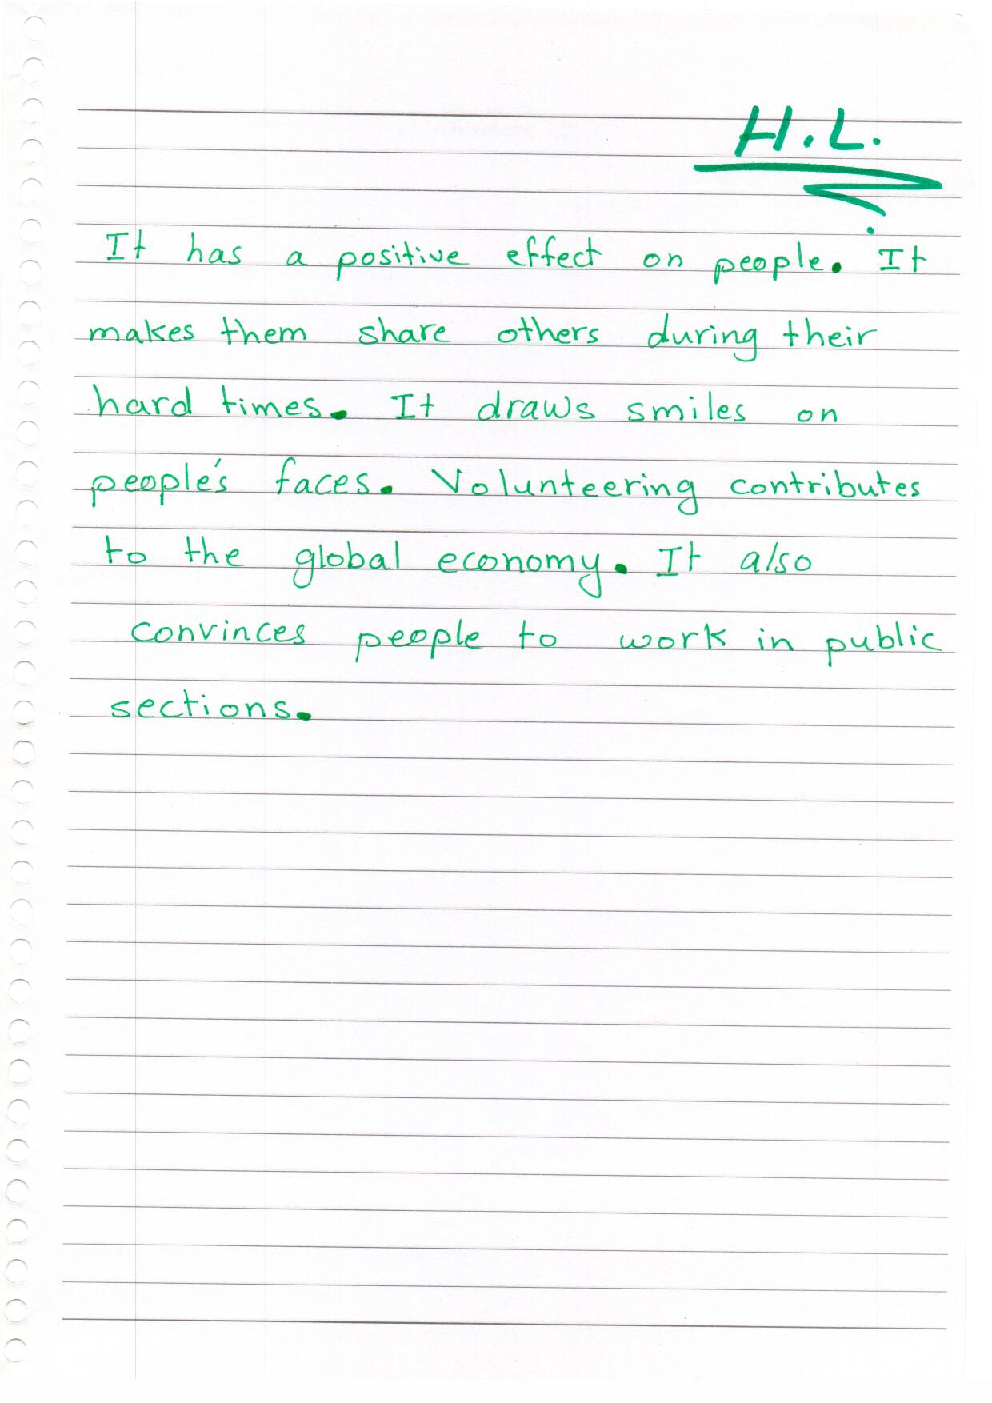 H.L.
It has a positive effect on people. It
makes them share others during their
hard times. It draws smiles on
people's faces. Volunteering contributes
to the global economy. It also
convinces people to work in public
sections.